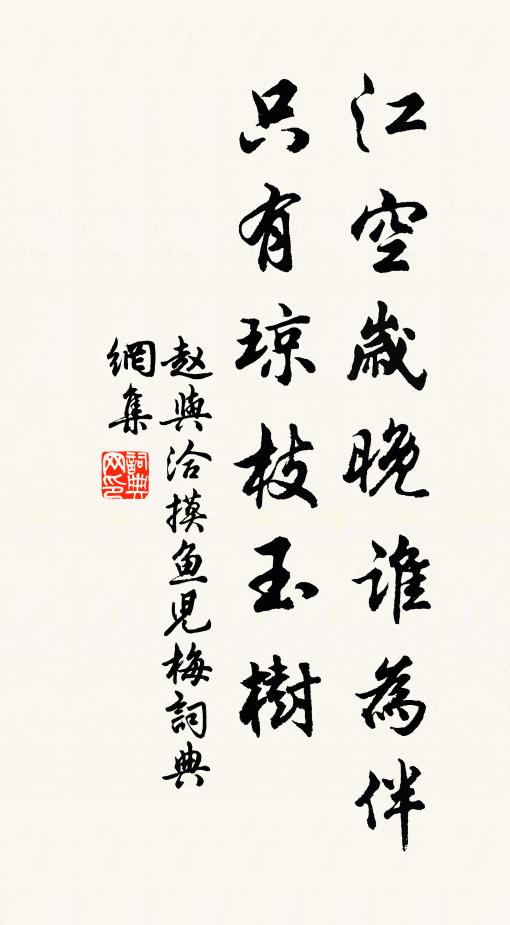 江空歲晚誰為伴
只有琼枝玉樹
赵與洽摸鱼児梅詞典
網集
詞典
网印